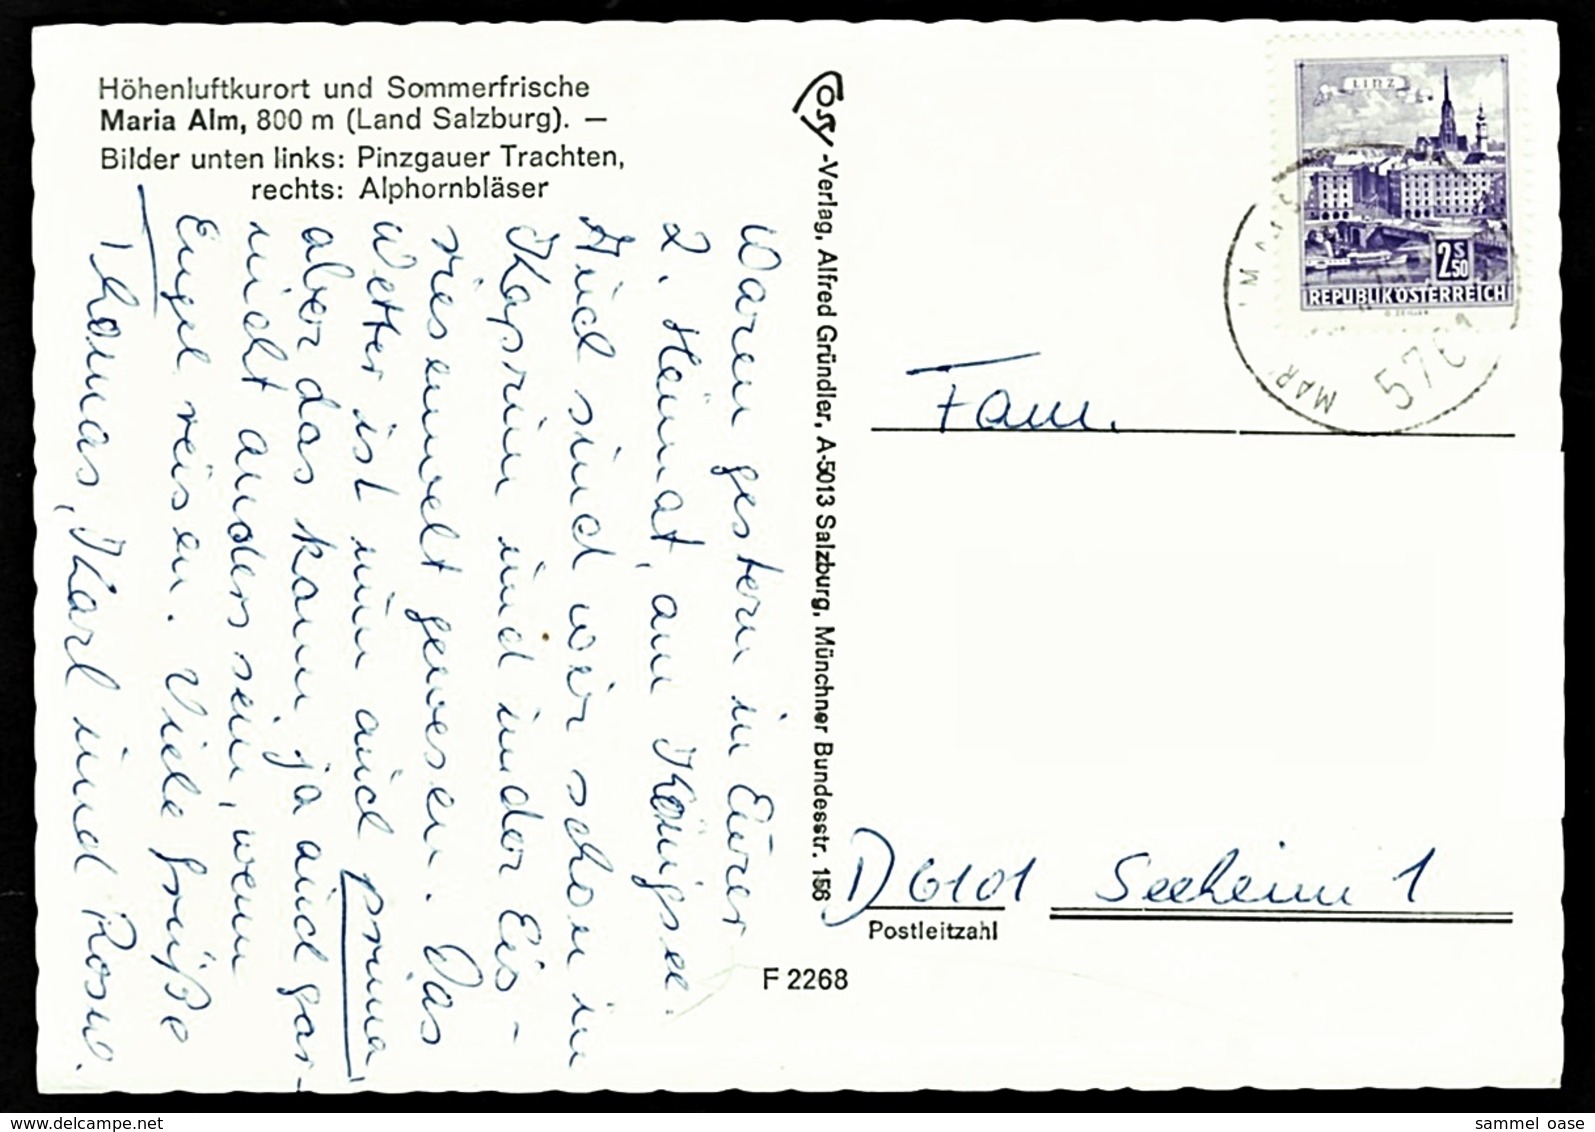 Höhenluftkurort und Sommerfrische
Maria Alm, 800 m (Land Salzburg). —
Bilder unten links: Pinzgauer Trachten,
rechts: Alphornbläser
Waren gestern in Eurer
2. Heimat, am Königsee.
Auch sind wir schon in
Kaprun und in der Eis-
riesenwelt gewesen. Das
Wetter ist nun auch prima
aber das kann ja auch gar-
nicht anders sein, wenn
Engel reisen. Viele Grüße
Thomas, Karl und Rosw.
Cosy-Verlag, Alfred Gründler, A-5013 Salzburg, Münchner Bundesstr. 156
LINZ
2 S 50
REPUBLIK ÖSTERREICH
Fam.
D 6101 Seeheim 1
Postleitzahl
F 2268
www.delcampe.net
sammel_oase